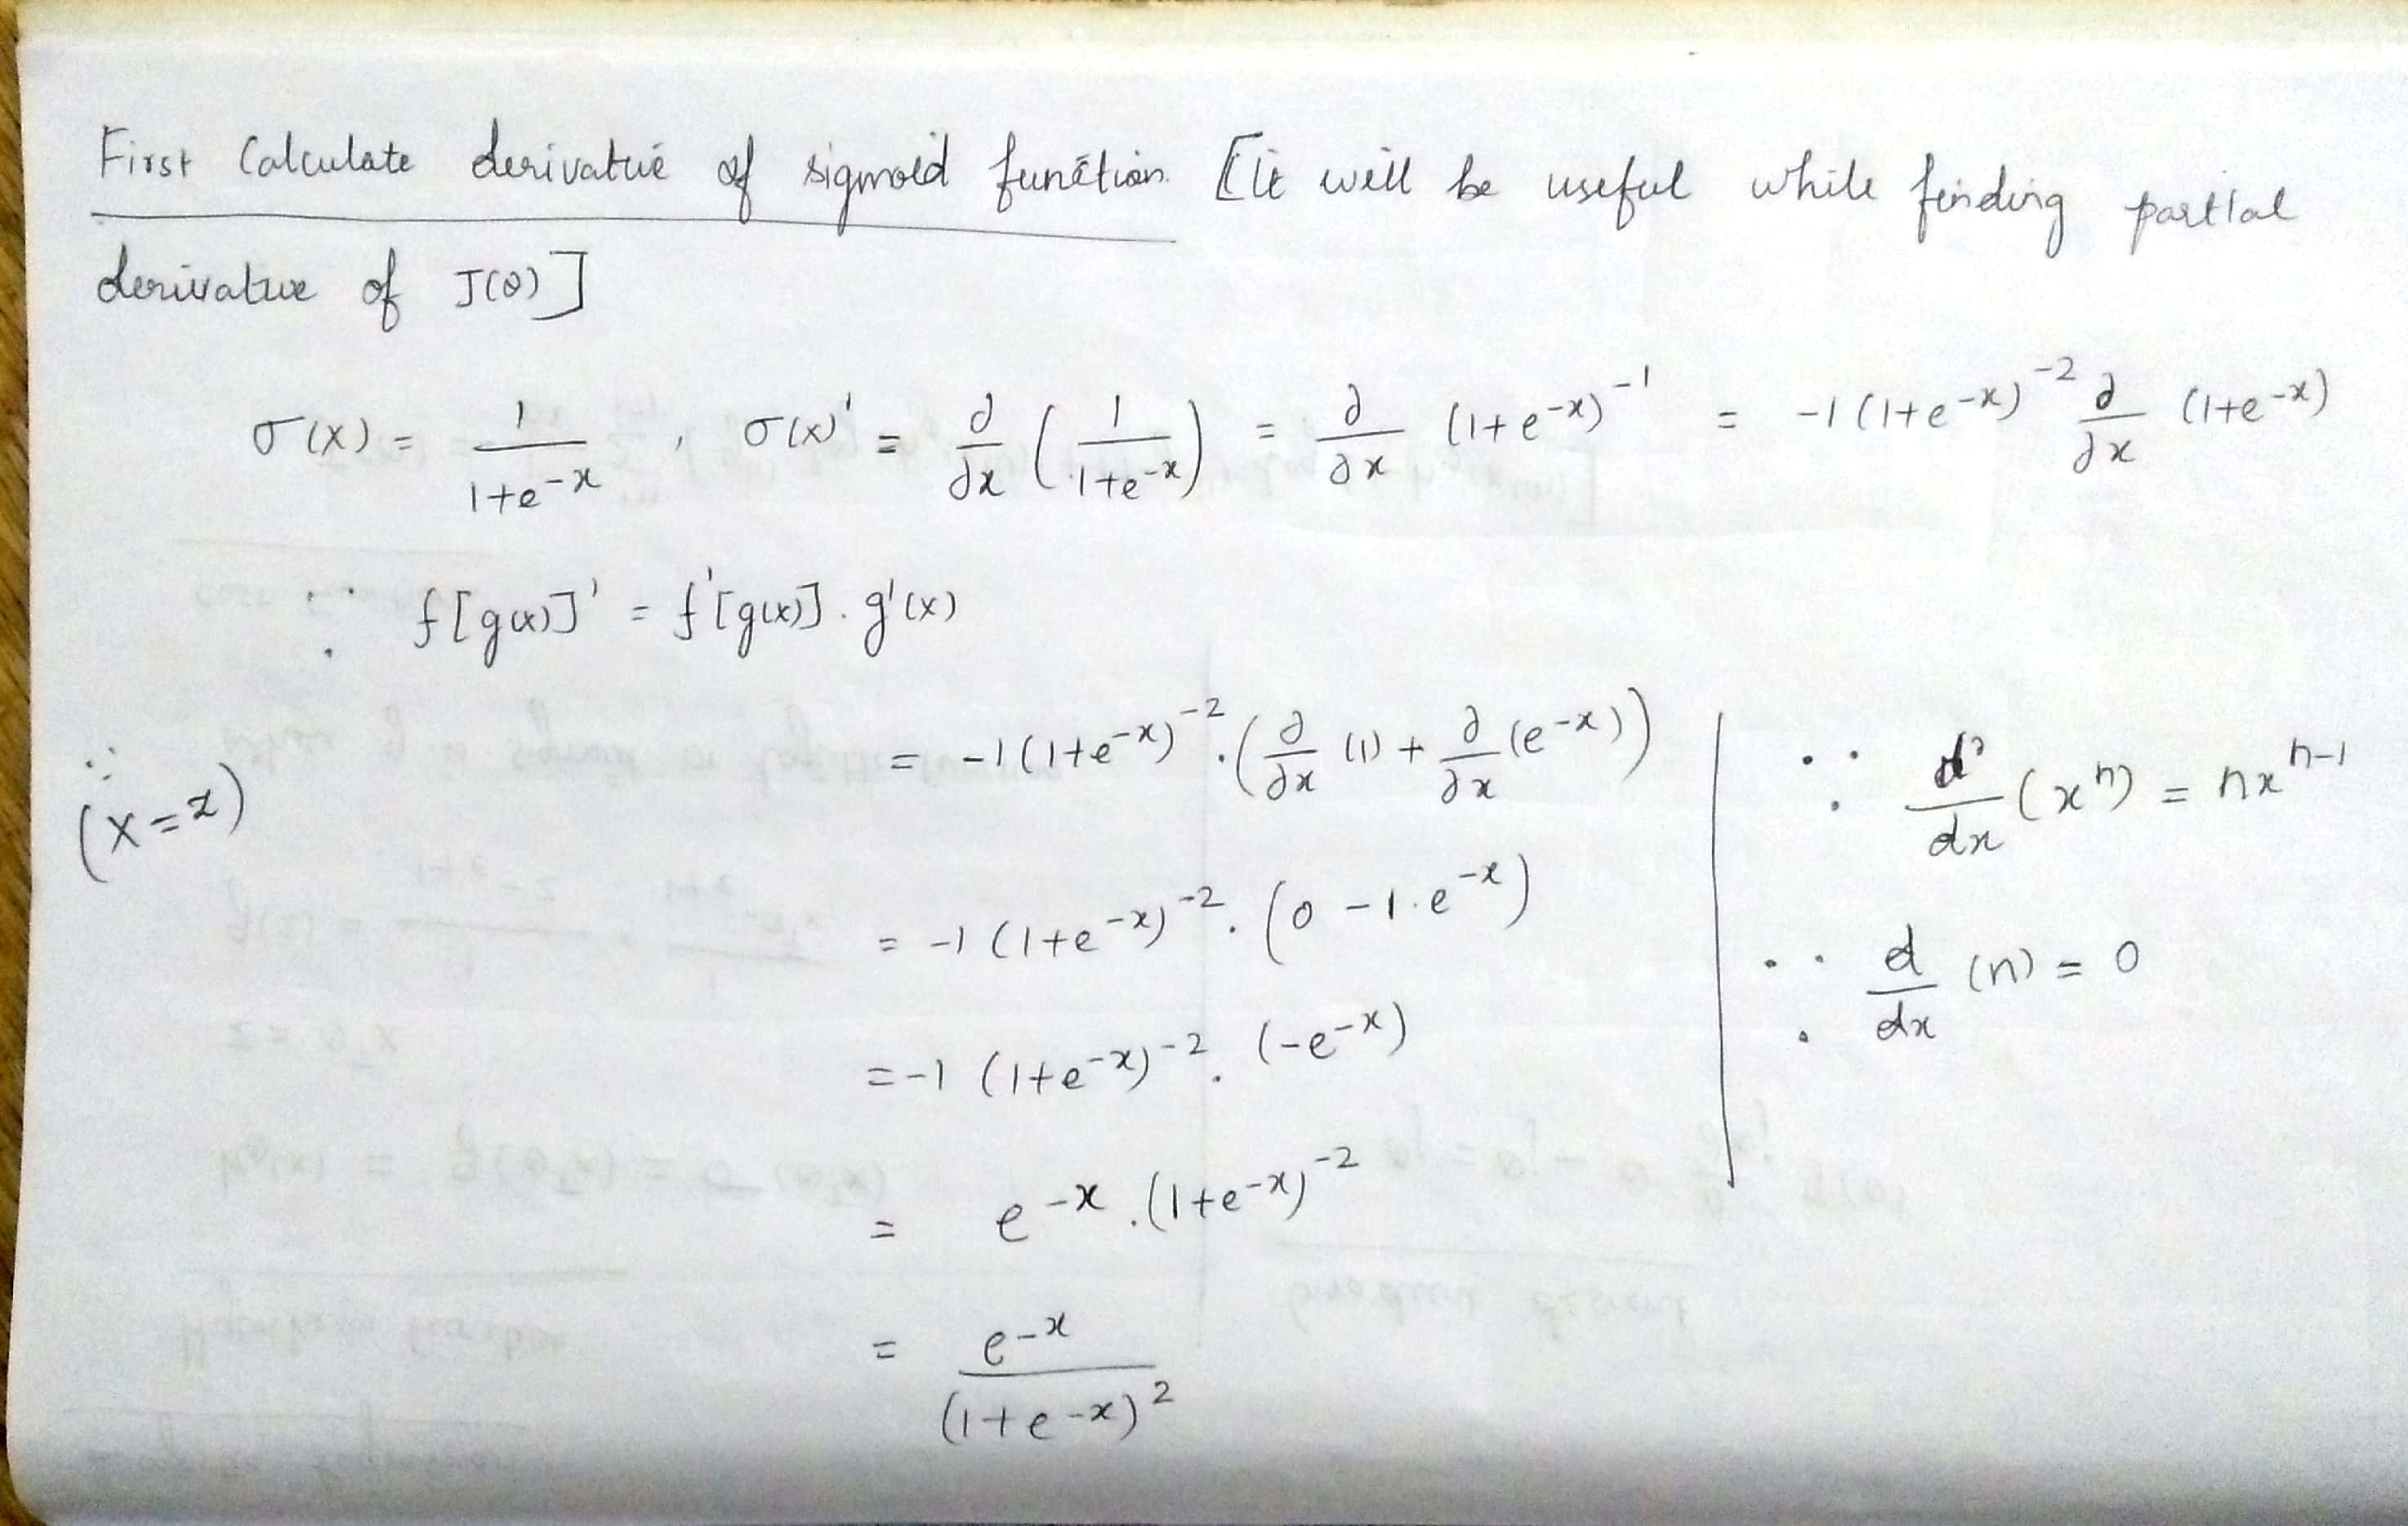 First Calculate derivative of sigmoid function [It will be useful while finding partial
derivative of J(θ)]
σ(x) = 1/(1+e^-x) , σ(x)' = ∂/∂x (1/(1+e^-x)) = ∂/∂x (1+e^-x)^-1 = -1(1+e^-x)^-2 ∂/∂x (1+e^-x)
∵ f[g(x)]' = f'[g(x)] . g'(x)
= -1(1+e^-x)^-2 . (∂/∂x (1) + ∂/∂x (e^-x)) ∵ d/dx (x^n) = nx^n-1
∵ (x=z)
= -1(1+e^-x)^-2 . (0 - 1.e^-x) ∵ d/dx (n) = 0
= -1 (1+e^-x)^-2 . (-e^-x)
= e^-x . (1+e^-x)^-2
= e^-x/(1+e^-x)^2